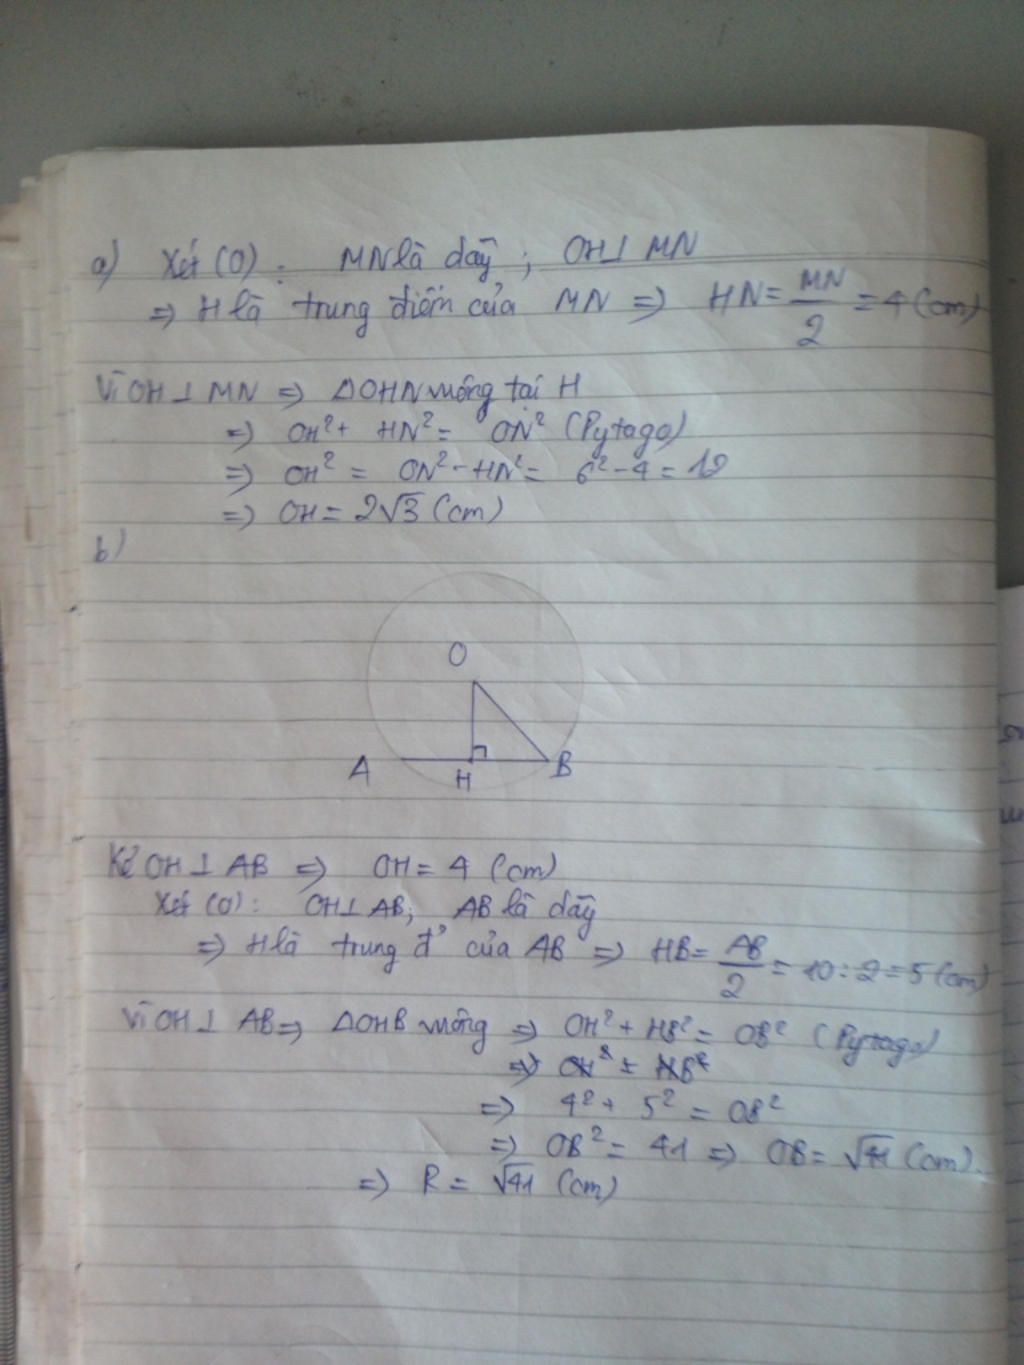 a) Xét (O): MN là dây; OH ⊥ MN
=> H là trung điểm của MN => HN = MN/2 = 4 (cm)
Vì OH ⊥ MN => ΔOHN vuông tại H
=> OH² + HN² = ON² (Pytago)
=> OH² = ON² - HN² = 6² - 4 = 12
=> OH = 2√3 (cm)
b)
O
A H B
Kẻ OH ⊥ AB => OH = 4 (cm)
Xét (O): OH ⊥ AB; AB là dây
=> H là trung đ' của AB => HB = AB/2 = 10 : 2 = 5 (cm)
Vì OH ⊥ AB => ΔOHB vuông => OH² + HB² = OB² (Pytago)
=> OH² = HB²
=> 4² + 5² = OB²
=> OB² = 41 => OB = √41 (cm).
=> R = √41 (cm)